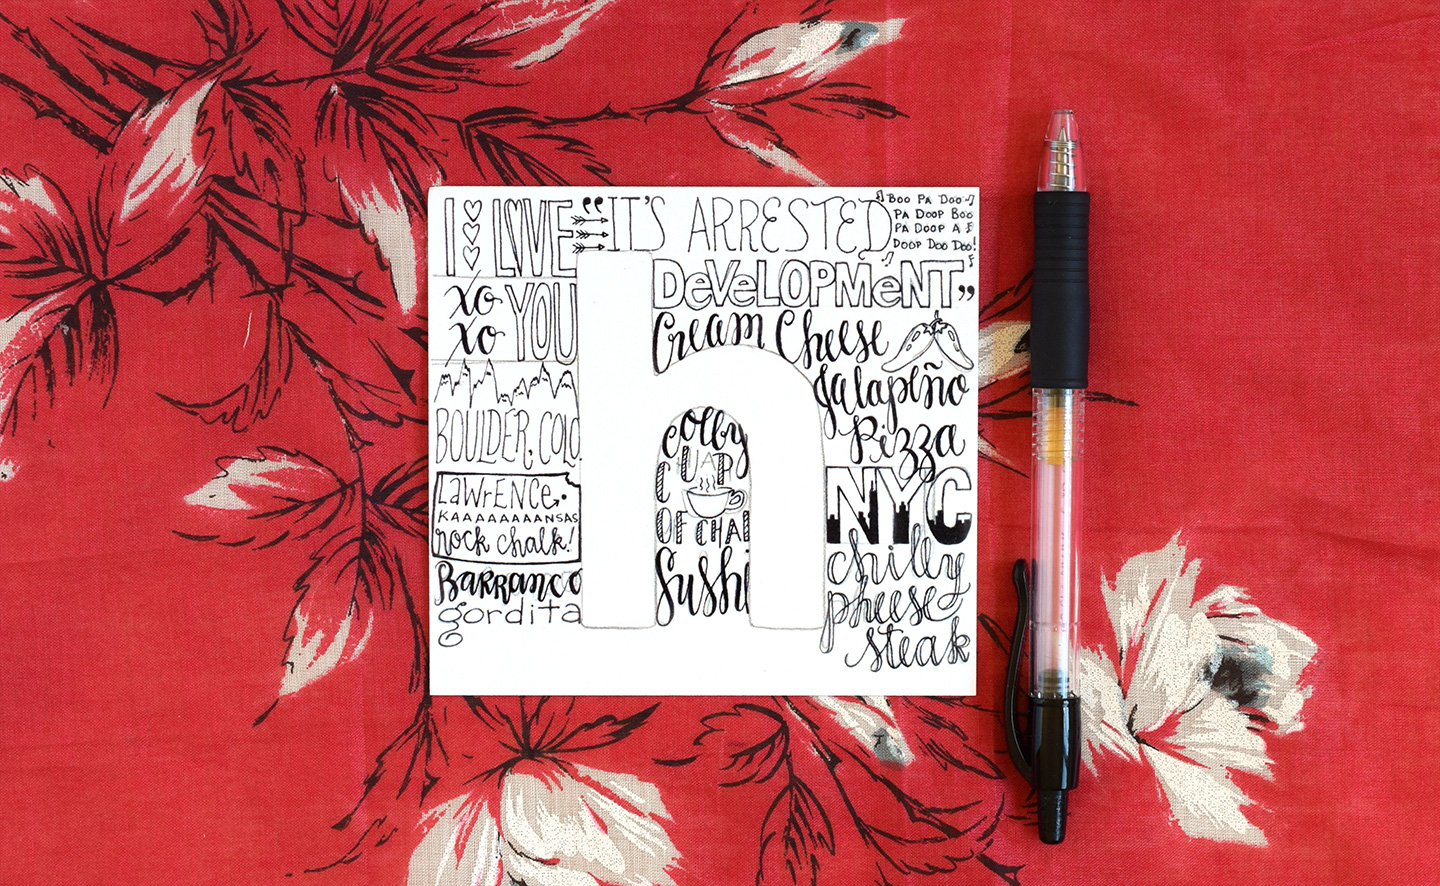 I LOVE
XO
XO
YOU
BOULDER, COLO.
LAWRENCE
KAAAAAAAANSAS
rock chalk!
BARRANCO
gordita
"IT'S ARRESTED
DEVELOPMENT"
BOO PA DOO
PA DOOP BOO
PA DOOP A
DOOP DOO DOO!
Cream Cheese
Jalapeño
Pizza
h
Colby
CUAP
OF CHAI
Sushi
NYC
chilly
pheese
steak